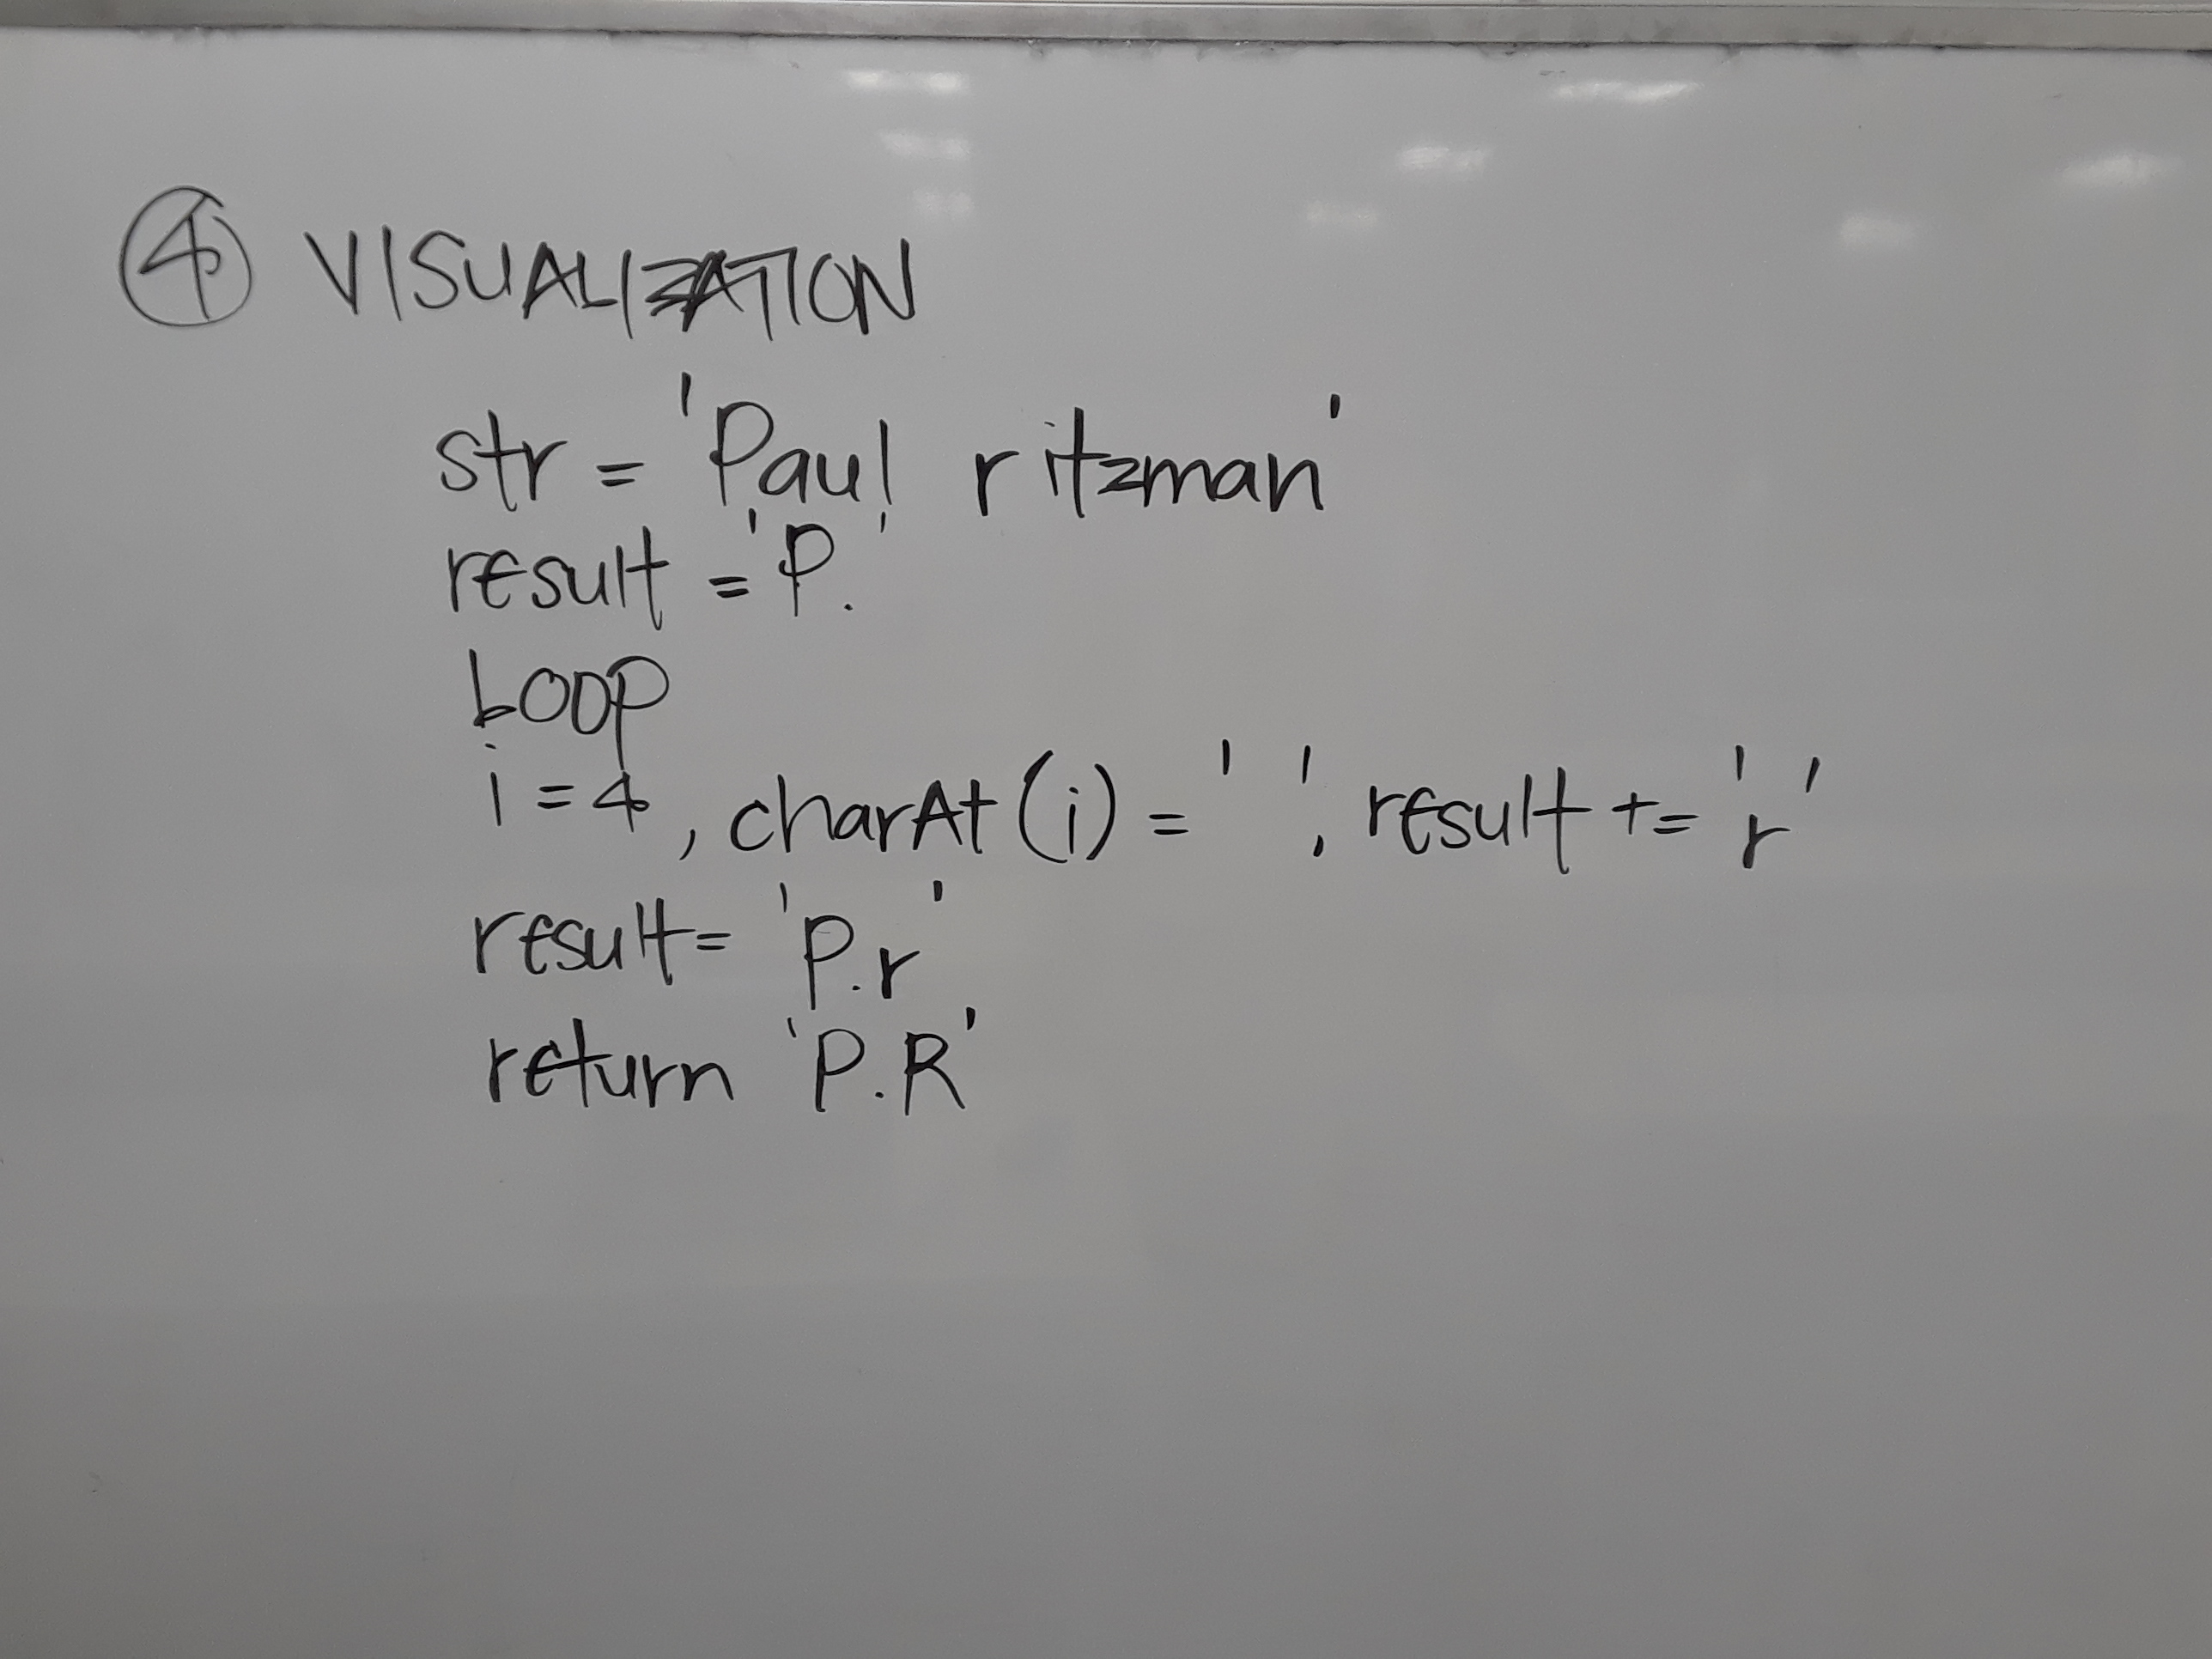 ④ VISUALIZATION
str = 'Paul ritzman'
result = 'P.'
Loop
i = 4, charAt(i) = ' ', result += 'r'
result = 'P.r'
return 'P.R'